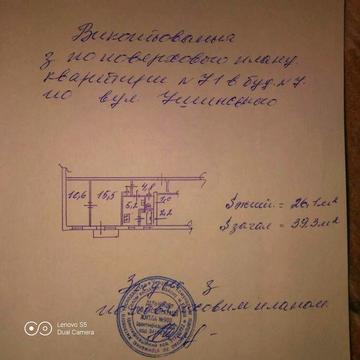 Викопіювання
з по поверхового плану
квартири №71 в буд. №7.
по вул. Ушинського
10,6 15,5 4,8
5,2 2,0
2,2
Sжил. = 26,1 м²
Sзагал = 39.3 м²
Згідно з
поповерховим планом
Lenovo S5
Dual Camera